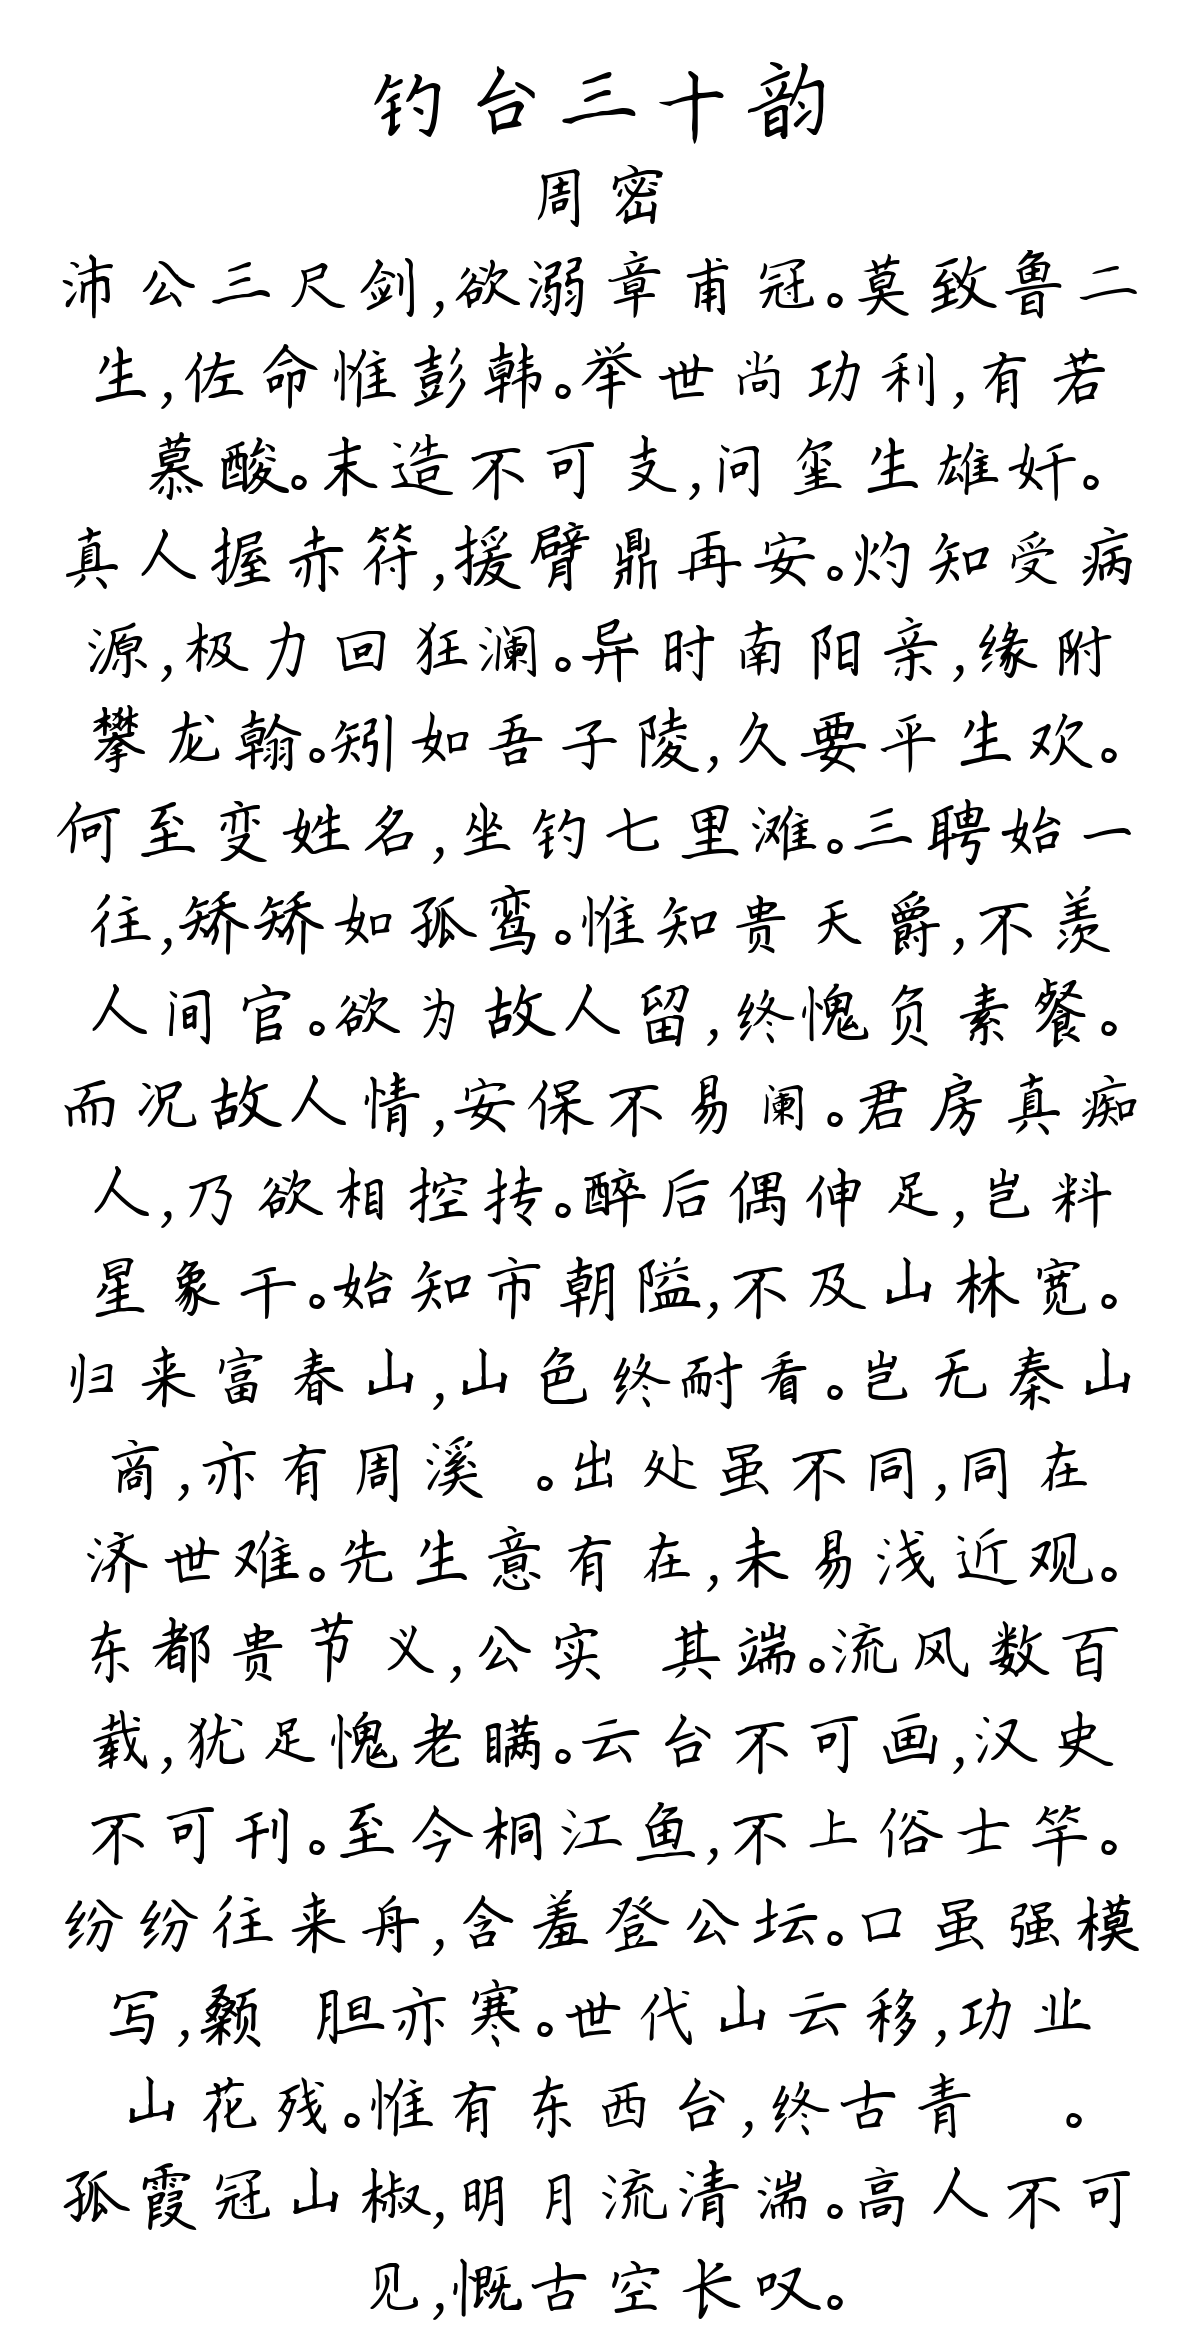 钓台三十韵
周密
沛公三尺剑,欲溺章甫冠。莫致鲁二
生,佐命惟彭韩。举世尚功利,有若
慕酸。末造不可支,问玺生雄奸。
真人握赤符,援臂鼎再安。灼知受病
源,极力回狂澜。异时南阳亲,缘附
攀龙翰。矧如吾子陵,久要平生欢。
何至变姓名,坐钓七里滩。三聘始一
往,矫矫如孤鸾。惟知贵天爵,不羡
人间官。欲为故人留,终愧负素餐。
而况故人情,安保不易阑。君房真痴
人,乃欲相控抟。醉后偶伸足,岂料
星象干。始知市朝隘,不及山林宽。
归来富春山,山色终耐看。岂无秦山
商,亦有周溪 。出处虽不同,同在
济世难。先生意有在,未易浅近观。
东都贵节义,公实 其端。流风数百
载,犹足愧老瞒。云台不可画,汉史
不可刊。至今桐江鱼,不上俗士竿。
纷纷往来舟,含羞登公坛。口虽强模
写,颡 胆亦寒。世代山云移,功业
山花残。惟有东西台,终古青 。
孤霞冠山椒,明月流清湍。高人不可
见,慨古空长叹。